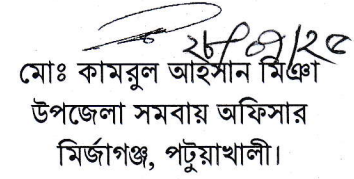 ২৮/০৭/২৫
মোঃ কামরুল আহসান মিঞা
উপজেলা সমবায় অফিসার
মির্জাগঞ্জ, পটুয়াখালী।